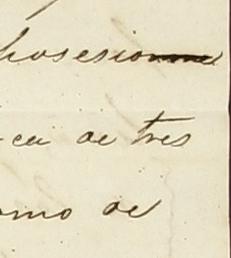 posesion
ca de tres
omo de